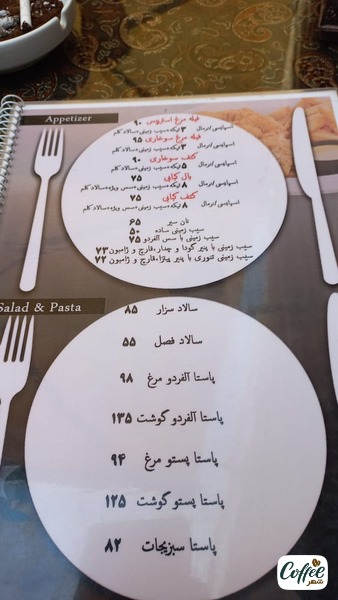 Appetizer
فیله مرغ استریپس ۹۰
اسپایسی/نرمال ۳ تیکه،سیب زمینی،سالاد کلم
فیله مرغ سوخاری ۹۵
اسپایسی/نرمال ۳ تیکه،سیب زمینی،سالاد کلم
کتف سوخاری ۹۰
اسپایسی/نرمال ۵ تیکه،سیب زمینی،سالاد کلم
بال کبابی ۷۵
اسپایسی/نرمال ۸ تیکه،سیب زمینی،سس ویژه،سالاد کلم
کتف کبابی ۷۵
اسپایسی/نرمال ۸ تیکه،سیب زمینی،سس ویژه،سالاد کلم
نان سیر ۶۵
سیب زمینی ساده ۵۰
سیب زمینی با سس آلفردو ۷۵
سیب زمینی با پنیر گودا و چدار،قارچ و ژامبون ۷۳
سیب زمینی تنوری با پنیر پیتزا،قارچ و ژامبون ۷۲
Salad & Pasta
سالاد سزار ۸۵
سالاد فصل ۵۵
پاستا آلفردو مرغ ۹۸
پاستا آلفردو گوشت ۱۳۵
پاستا پستو مرغ ۹۴
پاستا پستو گوشت ۱۲۵
پاستا سبزیجات ۸۲
Coffee
شهر